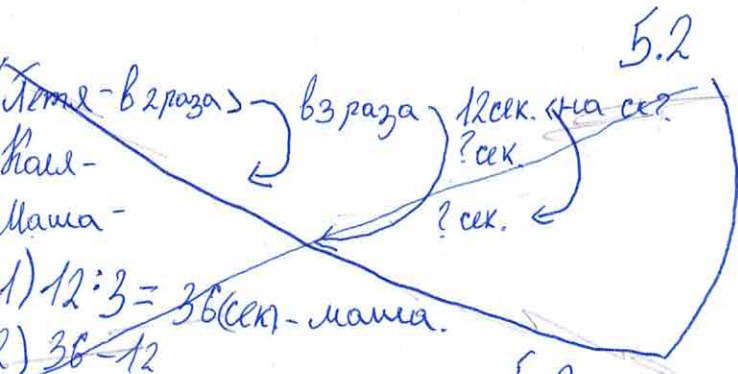 5.2
Петя - в 2 раза > в 3 раза 12 сек. < на ск?
Коля - ? сек.
Маша - ? сек.
1) 12 : 3 = 36 (сек) - маша.
2) 36 - 12